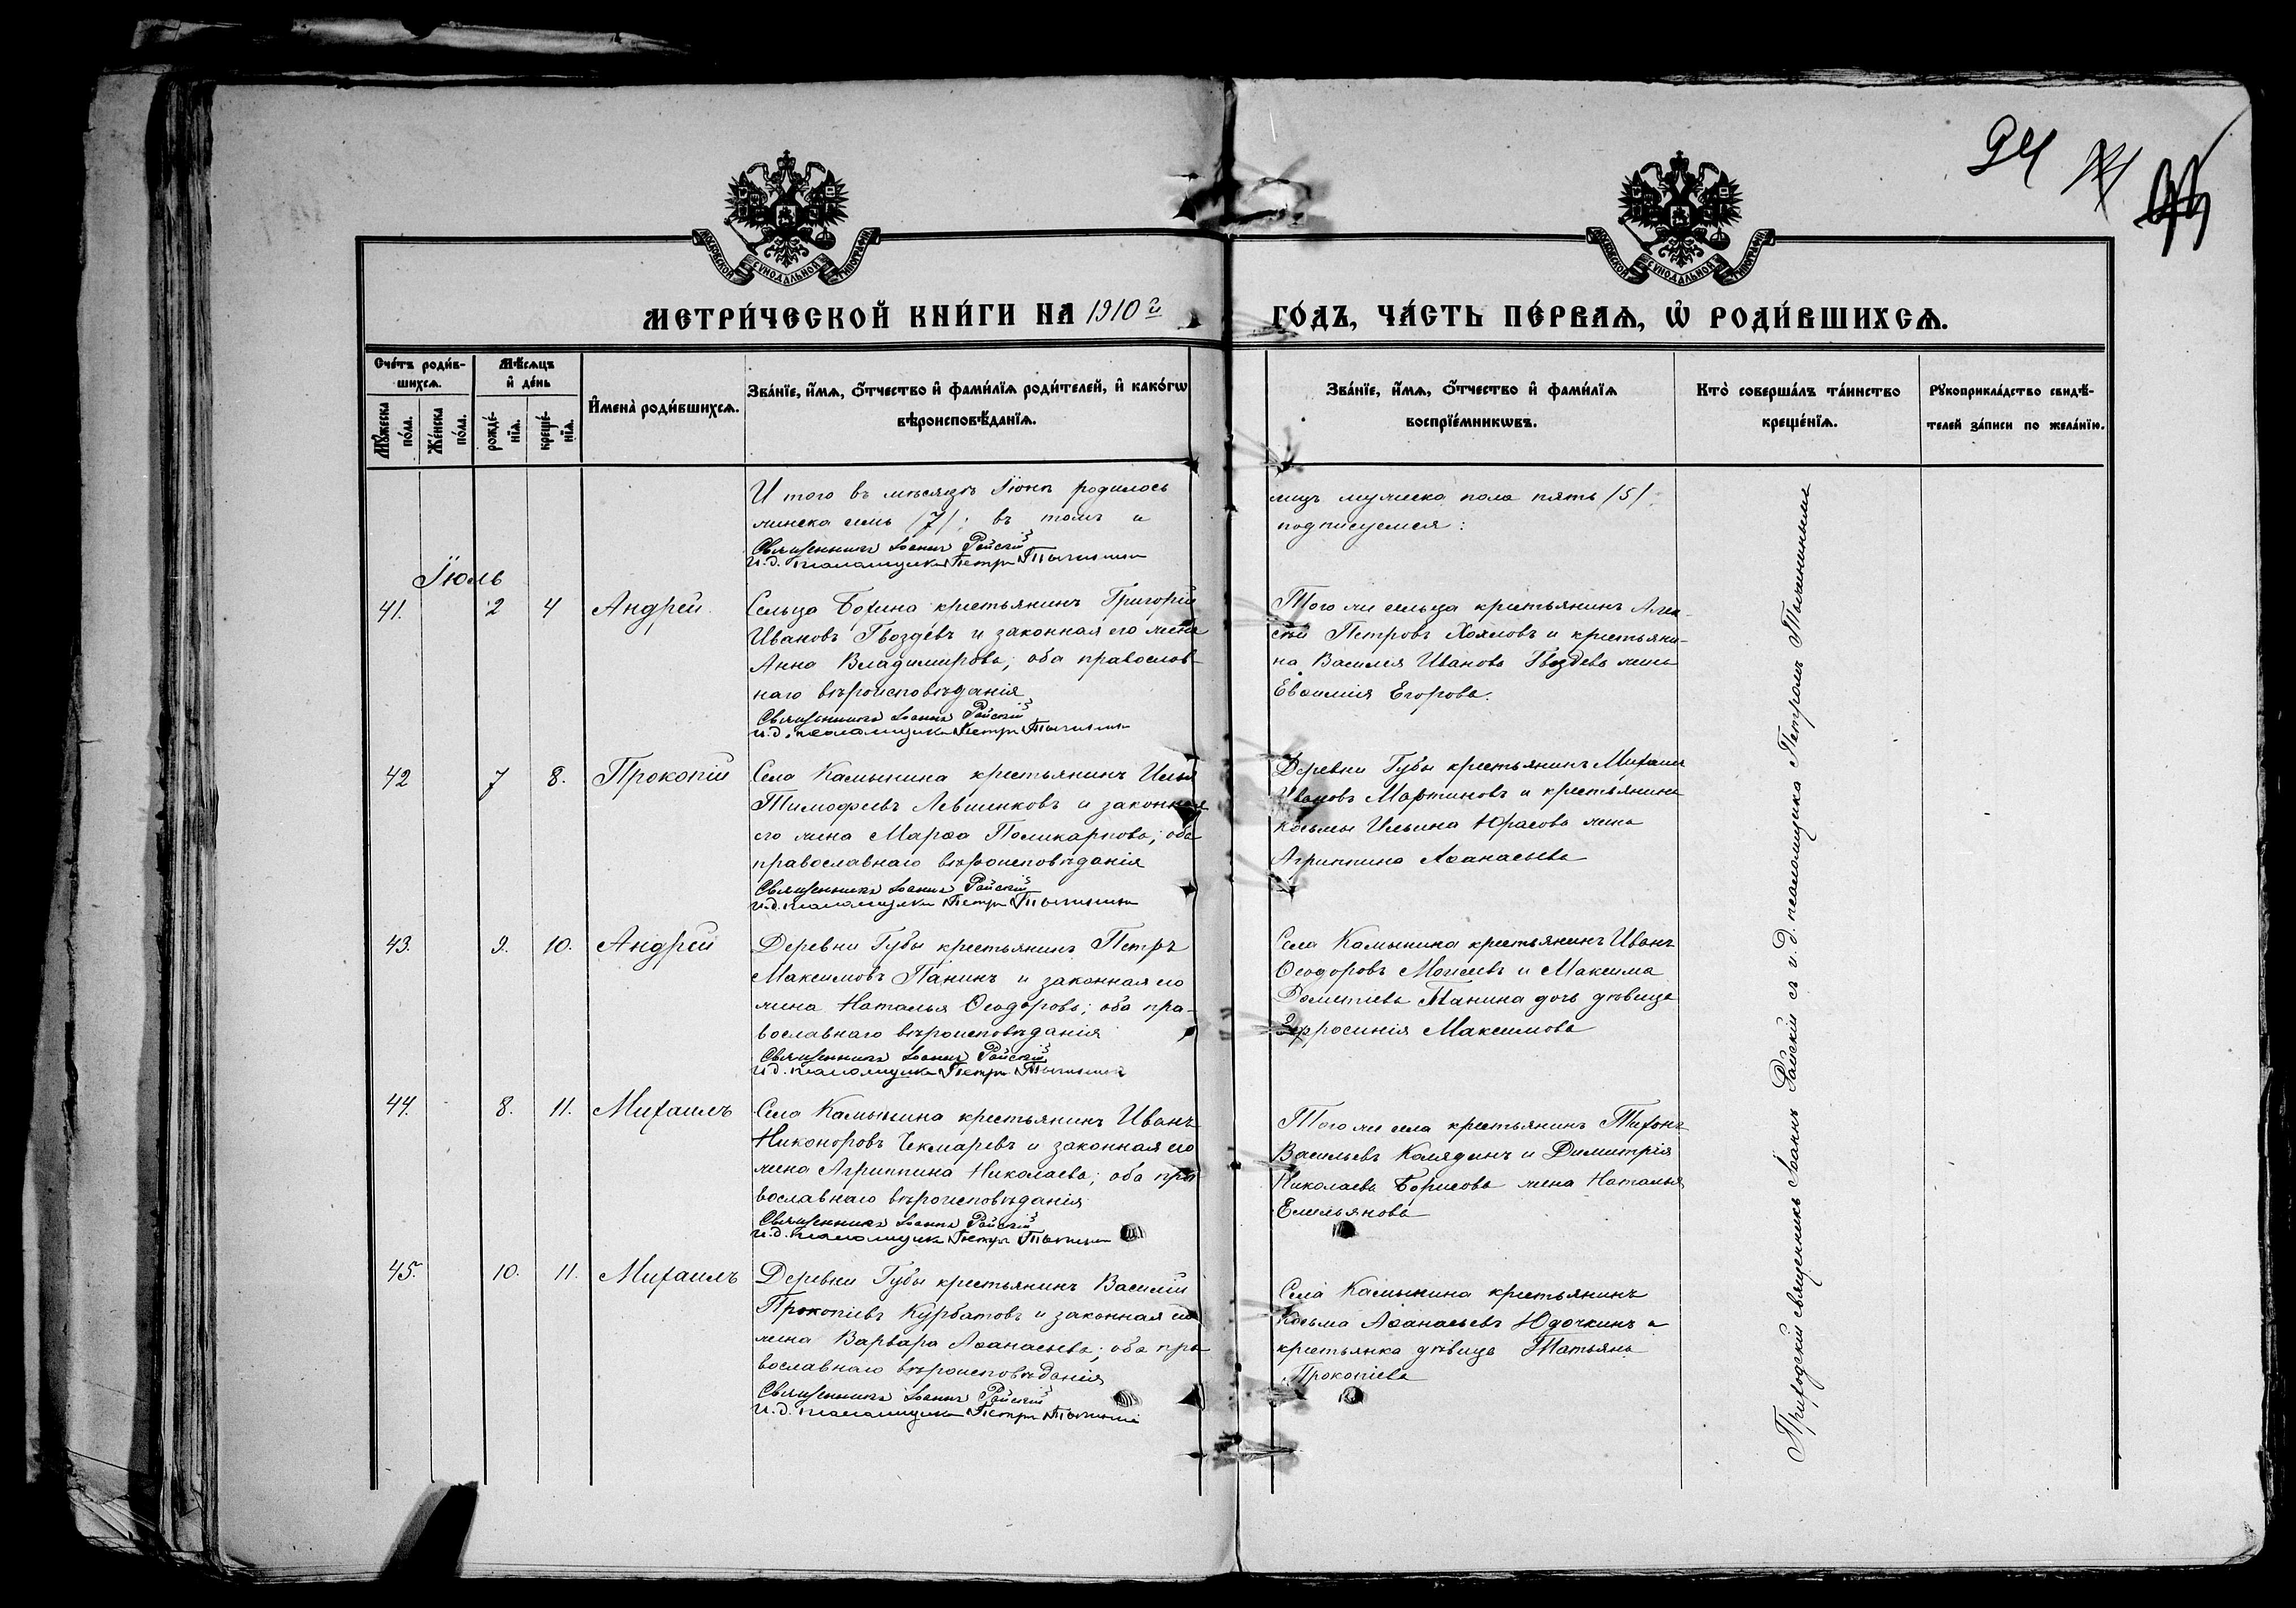 94
МОСКОВСКОЙ СѴНОДАЛЬНОЙ ТИПОГРАФІИ
МОСКОВСКОЙ СѴНОДАЛЬНОЙ ТИПОГРАФІИ
МЕТРИ́ЧЕСКОЙ КНИ́ГИ НА 1910 й
ГО́ДЪ, ЧА́СТЬ ПЕ́РВАѦ, Ѡ РОДИ́ВШИХСѦ.
Сче́тъ роди́в-
шихсѧ.
Мꙋ́жеска
по́ла.
Же́нска
по́ла.
Мѣ́сѧцъ
и҆ де́нь
рожде́-
нїѧ.
креще́-
нїѧ.
И҆мена̀ роди́вшихсѧ.
Зва́нїе, и҆́мѧ, ѻ҆́тчество и҆ фами́лїѧ роди́телей, и҆ како́гѡ
вѣроисповѣ́данїѧ.
Зва́нїе, и҆́мѧ, ѻ҆́тчество и҆ фами́лїѧ
воспрїе́мникѡвъ.
Кто̀ соверша́лъ та́инство
креще́нїѧ.
Рꙋкоприкла́дство свидѣ́-
телей за́писи по жела́нїю.
И того въ мѣсяцѣ Іюнѣ родилось
женска семь /7/; въ томъ и
Священникъ Іоаннъ Райскій
И.д. псаломщика Петръ Тычининъ
лицъ мужеска пола пять /5/
подписуемся:
Іюль
41. 2 4 Андрей
Сельца Бохина крестьянинъ Григорій
Ивановъ Гвоздевъ и законная его жена
Анна Владимирова; оба православ-
наго вѣроисповѣданія
Священникъ Іоаннъ Райскій
и.д. псаломщика Петръ Тычининъ
Того же сельца крестьянинъ Алек-
сѣй Петровъ и крестьяни-
на Василія Иванова Гвоздева жена
Евѳимія Егорова.
42 7 8. Прокопій
Села Камынина крестьянинъ Илья
Тимофеевъ Левшенковъ и законная
его жена Марѳа Поликарпова; оба
православнаго вѣроисповѣданія
Священникъ Іоаннъ Райскій
и.д. псаломщика Петръ Тычининъ
Деревни Губы крестьянинъ Михаилъ
Ивановъ Мартиновъ и крестьянина
Косьмы Ильина Юрасова жена
Агриппина Аѳанасьева
43. 9. 10. Андрей
Деревни Губы крестьянинъ Петръ
Максимовъ Панинъ и законная его
жена Наталья Ѳеодорова; оба пра-
вославнаго вѣроисповѣданія
Священникъ Іоаннъ Райскій
и.д. псаломщика Петръ Тычининъ
Села Камынина крестьянинъ Иванъ
Ѳеодоровъ Моисеевъ и Максима
Панина дочь дѣвица
Ефросинія Максимова
44. 8. 11. Михаилъ
Села Камынина крестьянинъ Иванъ
Никоноровъ Чекмаревъ и законная его
жена Агриппина Николаева; оба пра-
вославнаго вѣроисповѣданія
Священникъ Іоаннъ Райскій
и.д. псаломщика Петръ Тычининъ
Того же села крестьянинъ Тихонъ
Васильевъ Калядинъ и Димитрія
Николаева Борисова жена Наталья
Емельянова
45. 10. 11. Михаилъ
Деревни Губы крестьянинъ Василій
Прокопіевъ Курбатовъ и законная его
жена Варвара Аѳанасьева; оба пра-
вославнаго вѣроисповѣданія
Священникъ Іоаннъ Райскій
И.д. псаломщика Петръ Тычининъ
Села Камынина крестьянинъ
Косьма Аѳанасьевъ Юдочкинъ и
крестьянка дѣвица Татьяна
Прокопіева
Приходскій священникъ Іоаннъ Райскій съ и.д. псаломщика Петромъ Тычининымъ